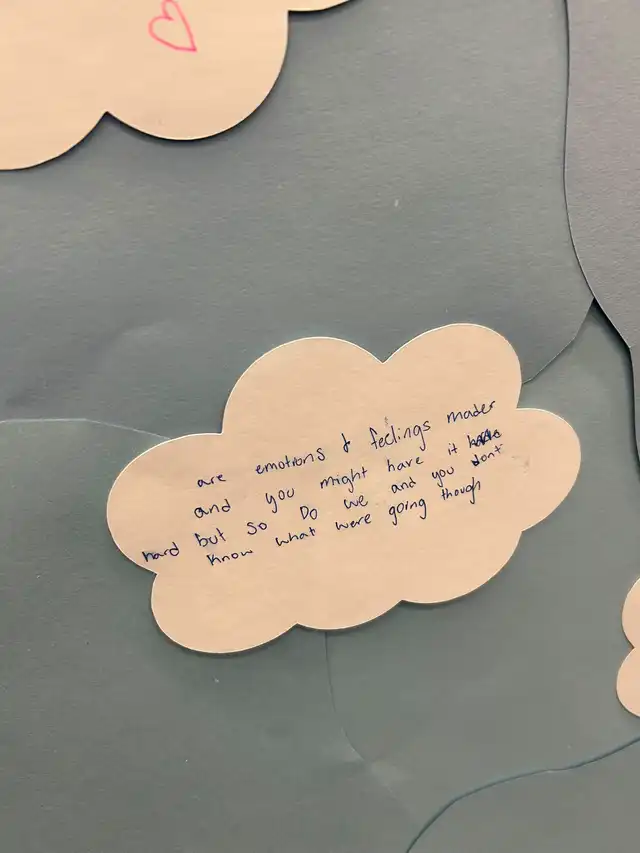 are emotions & feelings mader
and you might have it
hard but so Do we and you dont
know what were going though